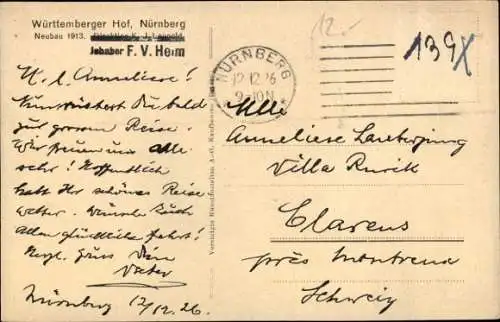 Württemberger Hof, Nürnberg
Neubau 1913. Direktion K. J. Leupold
Jnhaber F. V. Heim
12.-
139
NÜRNBERG
12.12.26
9-10N
M. l. Anneliese!
Nun rüstest Du bald
zur grossen Reise.
Wir freuen uns alle
sehr! Hoffentlich
habt Ihr schönes Reise
wetter. Wünsche Euch
Allen glückliche Fahrt!
Herzl. Gruss Dein
Vater
Nürnberg 12/12.26.
Vereinigte Kunstanstalten A.-G. Kaufbeuren
Mlle
Anneliese
Villa Rurik
Clarens
près Montreux
Schweiz